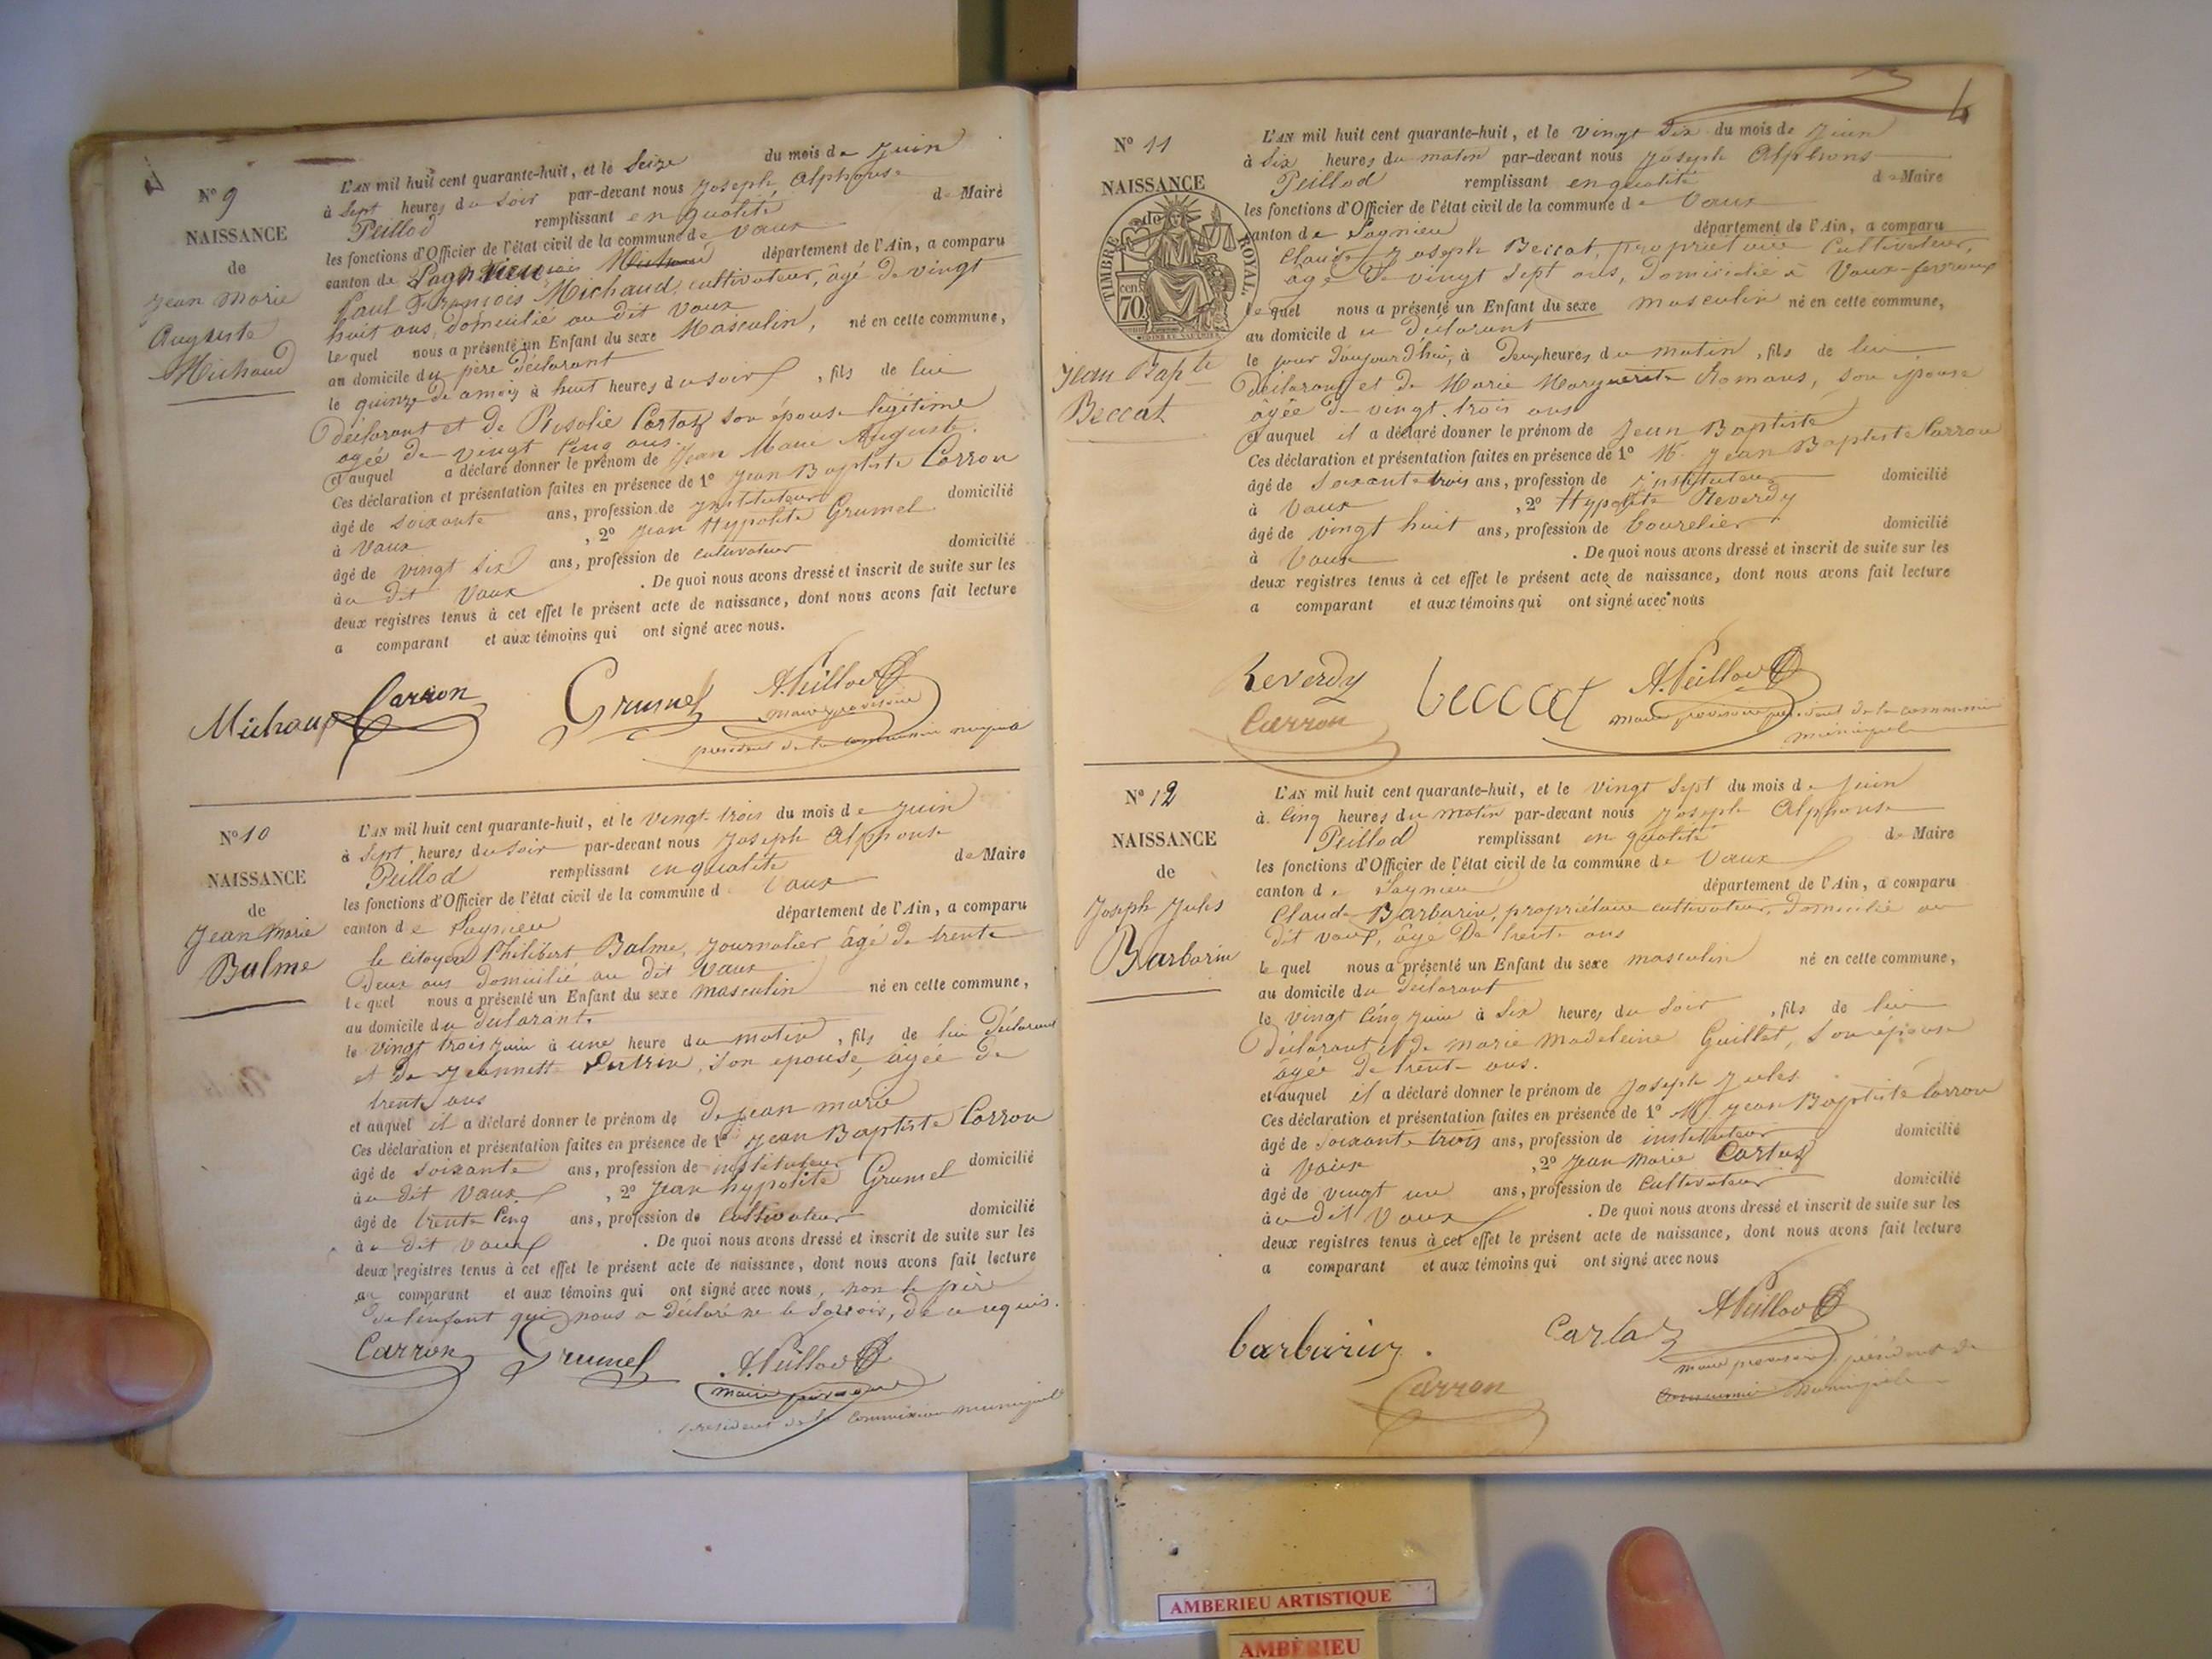 N° 9
NAISSANCE
de
Jean Marie
Auguste
Michaud
L'AN mil huit cent quarante-huit, et le Seize du mois de Juin
à Sept heures du Soir par-devant nous Joseph Alphonse
Peillod remplissant en qualité de Maire
les fonctions d'Officier de l'état civil de la commune de Vaux
canton de Lagnieu département de l'Ain, a comparu
Paul François Michaud, cultivateur, âgé de vingt
huit ans, domicilié au dit Vaux
lequel nous a présenté un Enfant du sexe Masculin, né en cette commune,
au domicile du père déclarant
le quinze de a mois à huit heures du soir, fils de lui
déclarant et de Rosalie Cortaz son épouse légitime
agée de vingt Cinq ans.
et auquel a déclaré donner le prénom de Jean Marie Auguste.
Ces déclaration et présentation faites en présence de 1° Jean Baptiste Carron
âgé de soixante ans, profession de Instituteur domicilié
à Vaux, 2° Jean Hypolite Grumel
âgé de vingt six ans, profession de cultivateur domicilié
à u dit Vaux. De quoi nous avons dressé et inscrit de suite sur les
deux registres tenus à cet effet le présent acte de naissance, dont nous avons fait lecture
a comparant et aux témoins qui ont signé avec nous.
Michaud Carron Grumel A. Peillod
maire provisoire
président de la commission municipale
N° 10
NAISSANCE
de
Jean Marie
Balme
L'AN mil huit cent quarante-huit, et le vingt-trois du mois de Juin
à Sept heures du Soir par-devant nous Joseph Alphonse
Peillod remplissant en qualité de Maire
les fonctions d'Officier de l'état civil de la commune d Vaux
canton de Lagnieu département de l'Ain, a comparu
le citoyen Philibert Balme, Journalier âgé de trente
Deux ans domicilié au dit Vaux
lequel nous a présenté un Enfant du sexe masculin né en cette commune,
au domicile du déclarant.
le vingt trois juin à une heure du matin, fils de lui Déclarant
et de Jeannette son épouse, âgée de
trente ans
et auquel il a déclaré donner le prénom de De Jean marie
Ces déclaration et présentation faites en présence de 1° Jean Baptiste Carron
âgé de soixante ans, profession de instituteur domicilié
à u dit Vaux, 2° Jean hypolite Grumel
âgé de trente Cinq ans, profession de cultivateur domicilié
à u dit Vaux. De quoi nous avons dressé et inscrit de suite sur les
deux registres tenus à cet effet le présent acte de naissance, dont nous avons fait lecture
au comparant et aux témoins qui ont signé avec nous, non le père
de l'enfant qui nous a déclaré ne le savoir, de ce requis.
Carron Grumel A. Peillod
maire provisoire
président de la Commission municipale
N° 11
NAISSANCE
de
TIMBRE ROYAL
70 cen
Jean Bapte
Beccat
L'AN mil huit cent quarante-huit, et le vingt Six du mois de Juin
à Six heures du matin par-devant nous Joseph Alphons
Peillod remplissant en qualité de Maire
les fonctions d'Officier de l'état civil de la commune de Vaux
canton de Lagnieu département de l'Ain, a comparu
Claude Joseph Beccat, propriétaire Cultivateur,
âgé de vingt sept ans, domicilié à Vaux-
lequel nous a présenté un Enfant du sexe masculin né en cette commune,
au domicile d u déclarant
le jour d'aujourd'hui, à Deux heures du matin, fils de lui
déclarant et de Marie Marguerite Romans, son épouse
âgée de vingt trois ans
et auquel il a déclaré donner le prénom de Jean Baptiste
Ces déclaration et présentation faites en présence de 1° M. Jean Baptiste Carron
âgé de soixante trois ans, profession de instituteur domicilié
à Vaux, 2° Hypolite Reverdy
âgé de vingt huit ans, profession de bourelier domicilié
à Vaux. De quoi nous avons dressé et inscrit de suite sur les
deux registres tenus à cet effet le présent acte de naissance, dont nous avons fait lecture
a comparant et aux témoins qui ont signé avec nous
Reverdy beccat A. Peillod
Carron maire provisoire président de la commission
municipale
N° 12
NAISSANCE
de
Joseph Jules
Barbarin
L'AN mil huit cent quarante-huit, et le vingt Sept du mois de Juin
à Cinq heures du matin par-devant nous Joseph Alphonse
Peillod remplissant en qualité de Maire
les fonctions d'Officier de l'état civil de la commune de Vaux
canton de Lagnieu département de l'Ain, a comparu
Claude Barbarin, propriétaire cultivateur, domicilié au
dit vaux, âgé De trente ans
lequel nous a présenté un Enfant du sexe masculin né en cette commune,
au domicile du déclarant
le vingt Cinq juin à Six heures du Soir, fils de lui
déclarant et de marie madeleine Guillet, Son épouse
âgée de trente ans.
et auquel il a déclaré donner le prénom de Joseph Jules
Ces déclaration et présentation faites en présence de 1° M. Jean Baptiste Carron
âgé de soixante trois ans, profession de instituteur domicilié
à Vaux, 2° Jean Marie Cartaz
âgé de vingt un ans, profession de Cultivateur domicilié
à u dit Vaux. De quoi nous avons dressé et inscrit de suite sur les
deux registres tenus à cet effet le présent acte de naissance, dont nous avons fait lecture
a comparant et aux témoins qui ont signé avec nous
barbarin. Cartaz A. Peillod
Carron maire provisoire président de
Commission Municipale
AMBERIEU ARTISTIQUE
AMBÉRIEU